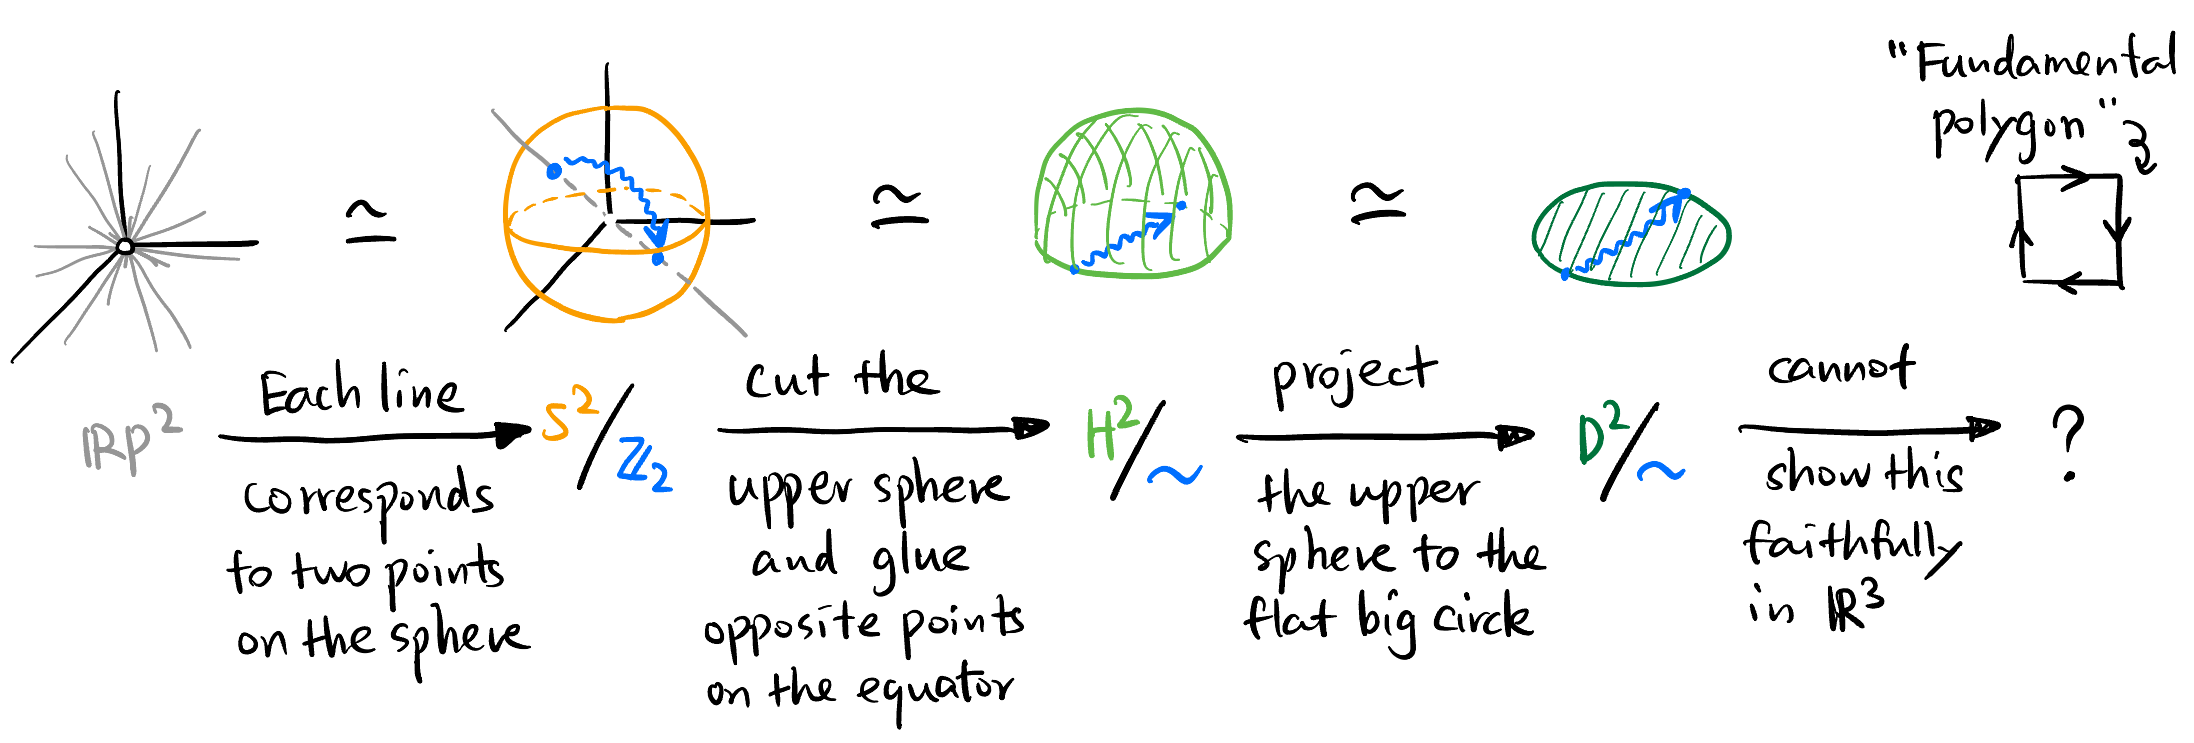 "Fundamental
polygon"
≃
≃
≃
ℝP²
Each line
corresponds
to two points
on the sphere
S²/ℤ₂
cut the
upper sphere
and glue
opposite points
on the equator
H²/~
project
the upper
sphere to the
flat big circle
D²/~
cannot
show this
faithfully
in ℝ³
?